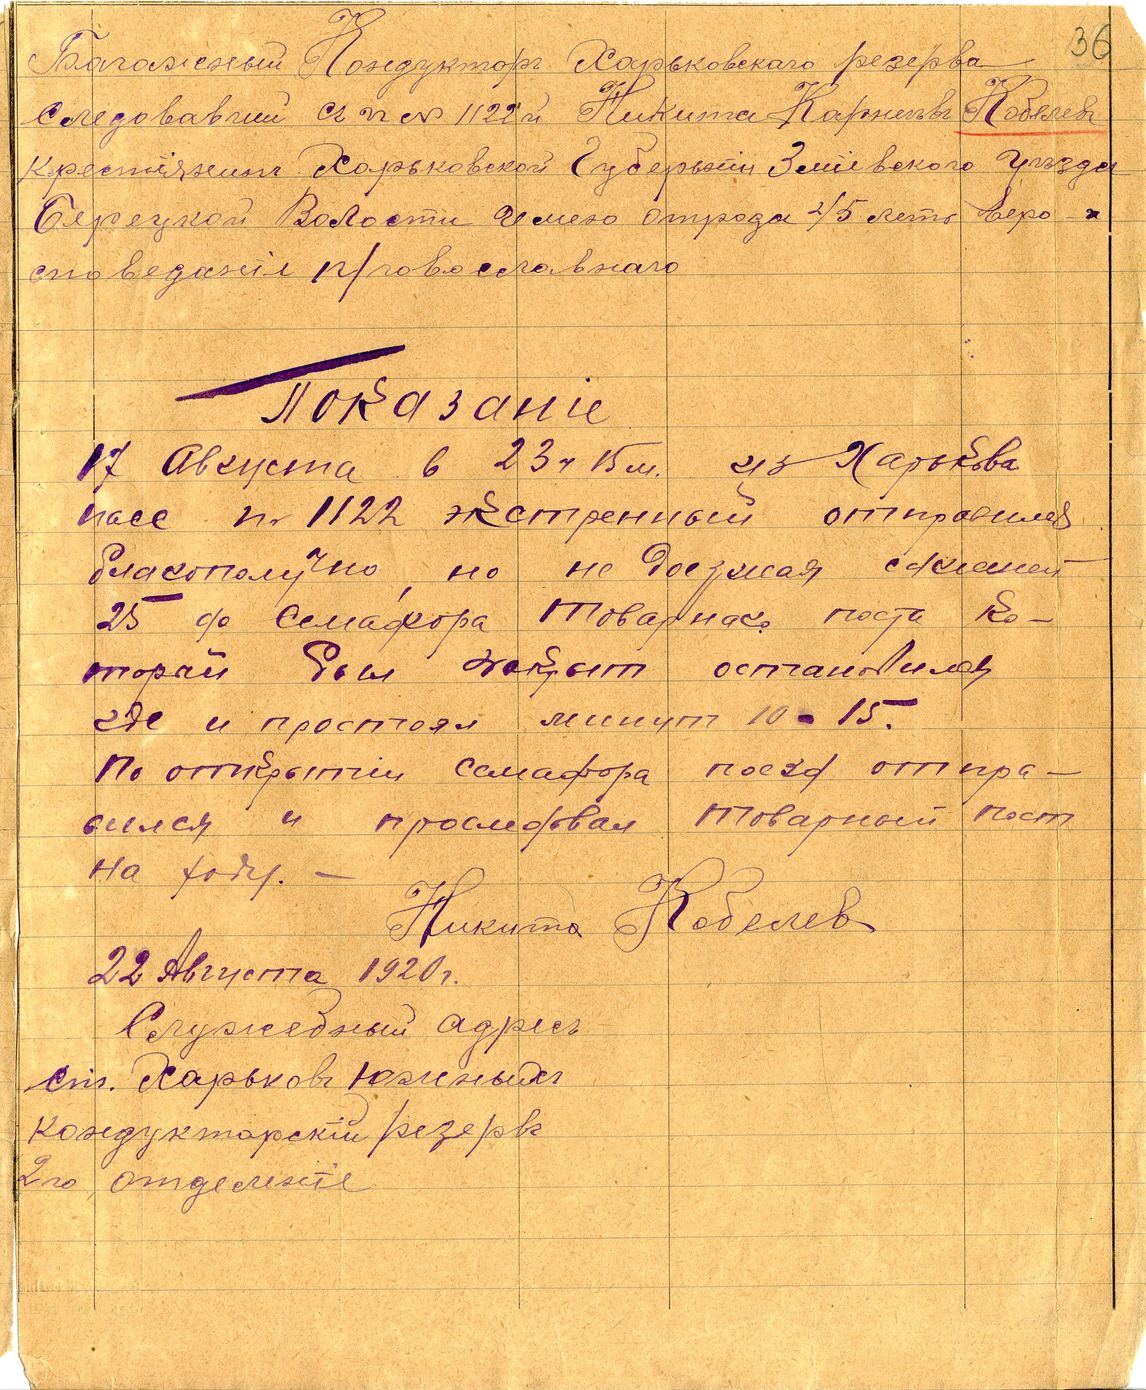 36
Багажный Кондукторъ Харьковскаго резерва
следовавший съ п № 1122й Никита Карнеевъ Кобелевъ
крестіянинъ Харьковской Губерніи Зміевского Уъзда
Берецкой Волости имею отрода 45 летъ веро-
споведаніе православнаго
Показаніе
17 Августа в 23 ч 15 м. из Харькова
пасс п. 1122 экстренный отправился
благополучно, но не доезжая сажней
25 до Семафора Товарнаго поста ко-
торый был закрыт остановился
где и простоял минут 10 - 15.
По открытии Семафора поезд отпра-
вился и проследовал Товарный пост
на ходу. —
Никита Кобелев
22 Августа 1920 г.
Служебный адресъ
ст. Харьковъ Южныхъ
кондукторскій резервъ
2го отделеніе